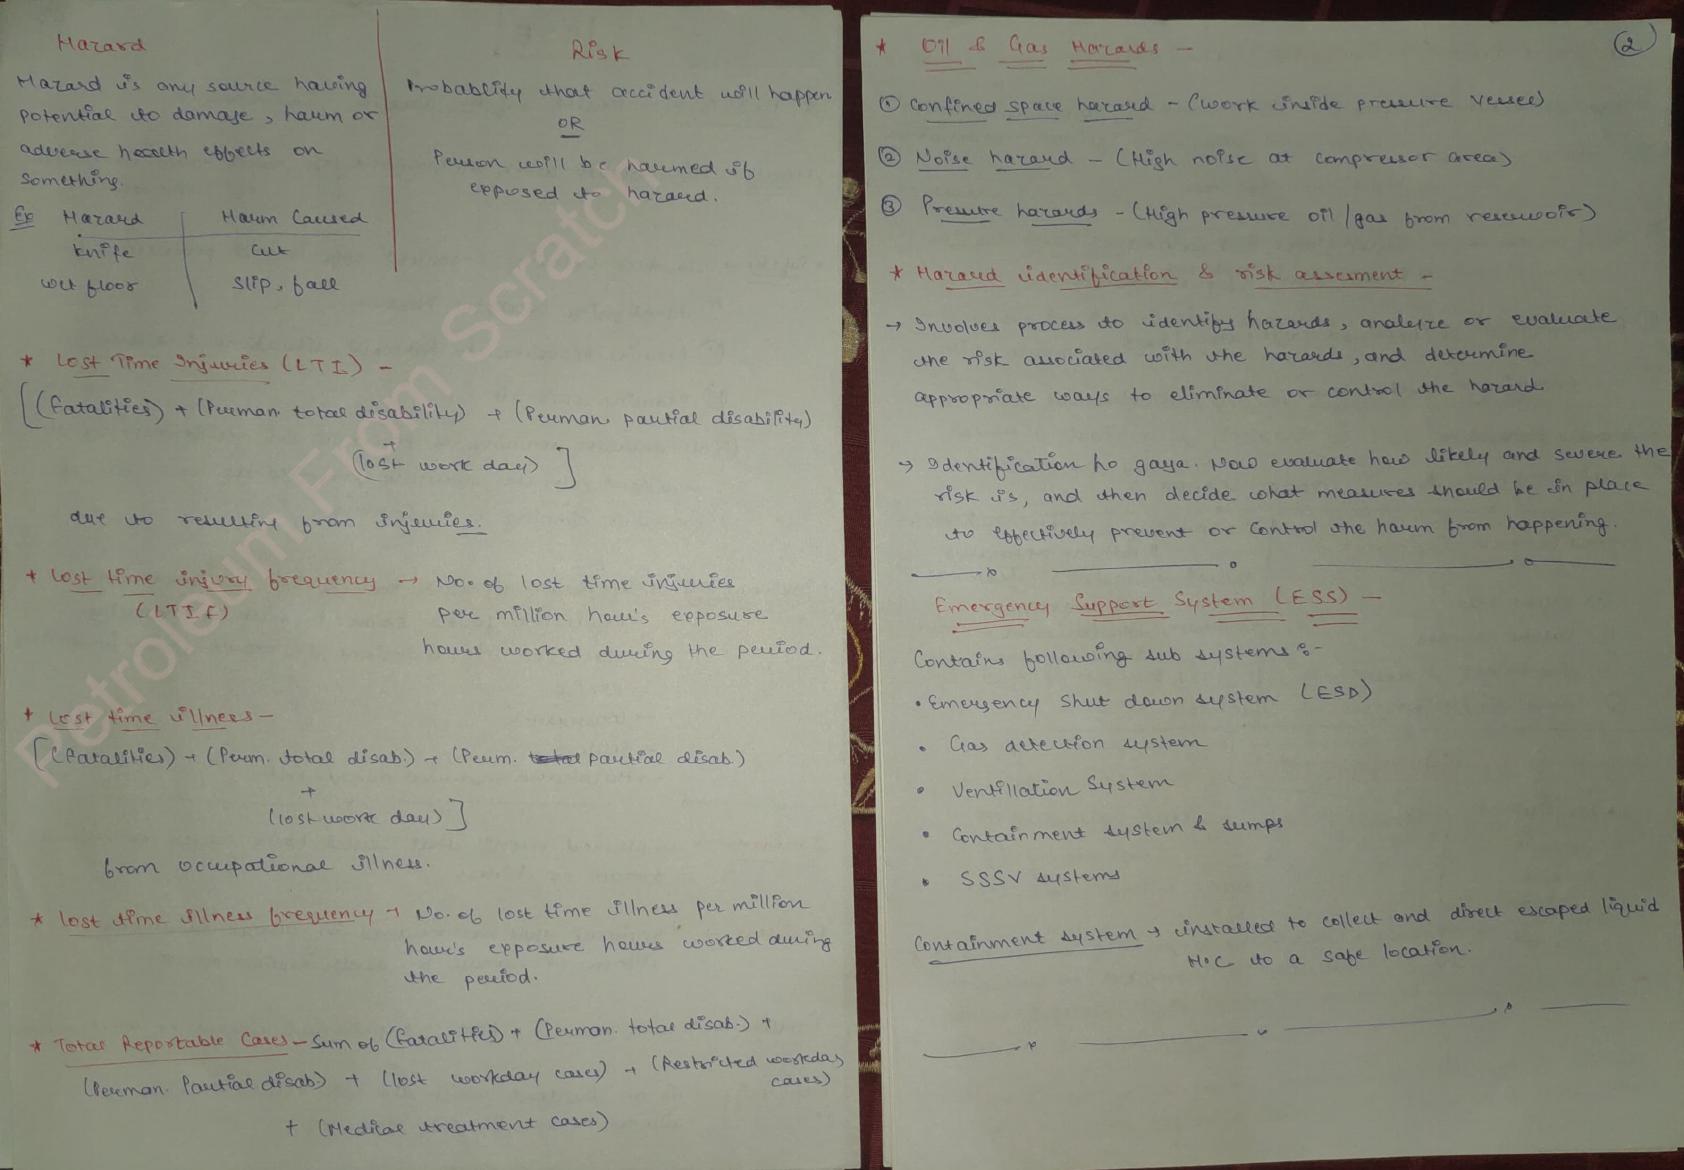 Hazard
Hazard is any source having
potential to damage, harm or
adverse health effects on
something.
Ex Hazard Harm Caused
Knife Cut
wet floor Slip, fall
Risk
Probablity that accident will happen
OR
Person will be harmed if
exposed to hazard.
* Lost Time Injuries (LTI) -
[(Fatalities) + (Perman. total disability) + (Perman. partial disability)
+
(lost work day)]
due to resulting from injuries.
* Lost time injury frequency → No. of lost time injuries
(LTIF) per million hour's exposure
hours worked during the period.
* Lost time illness -
[(Fatalities) + (Perm. total disab.) + (Perm. partial disab.)
+
(lost work day)]
from occupational illness.
* lost time illness frequency → No. of lost time illness per million
hour's exposure hours worked during
the period.
* Total Reportable Cases - Sum of (Fatalities) + (Perman. total disab.) +
(Perman. Partial disab.) + (lost workday cases) + (Restricted workday
cases)
+ (Medical treatment cases)
Petroleum From Scratch
2
* Oil & Gas Hazards -
① Confined space hazard - (work inside pressure vessel)
② Noise hazard - (High noise at compressor area)
③ Pressure hazards - (High pressure oil/gas from reservoir)
* Hazard identification & risk assesment -
→ Involves process to identify hazards, analyze or evaluate
the risk associated with the hazards, and determine
appropriate ways to eliminate or control the hazard
→ Identification ho gaya. Now evaluate how likely and severe the
risk is, and then decide what measures should be in place
to effectively prevent or control the harm from happening.
Emergency Support System (ESS) -
Contains following sub systems :-
• Emergency Shut down system (ESD)
• Gas detection system
• Ventillation System
• Containment system & sumps
• SSSV systems
Containment system → installed to collect and direct escaped liquid
H.C to a safe location.